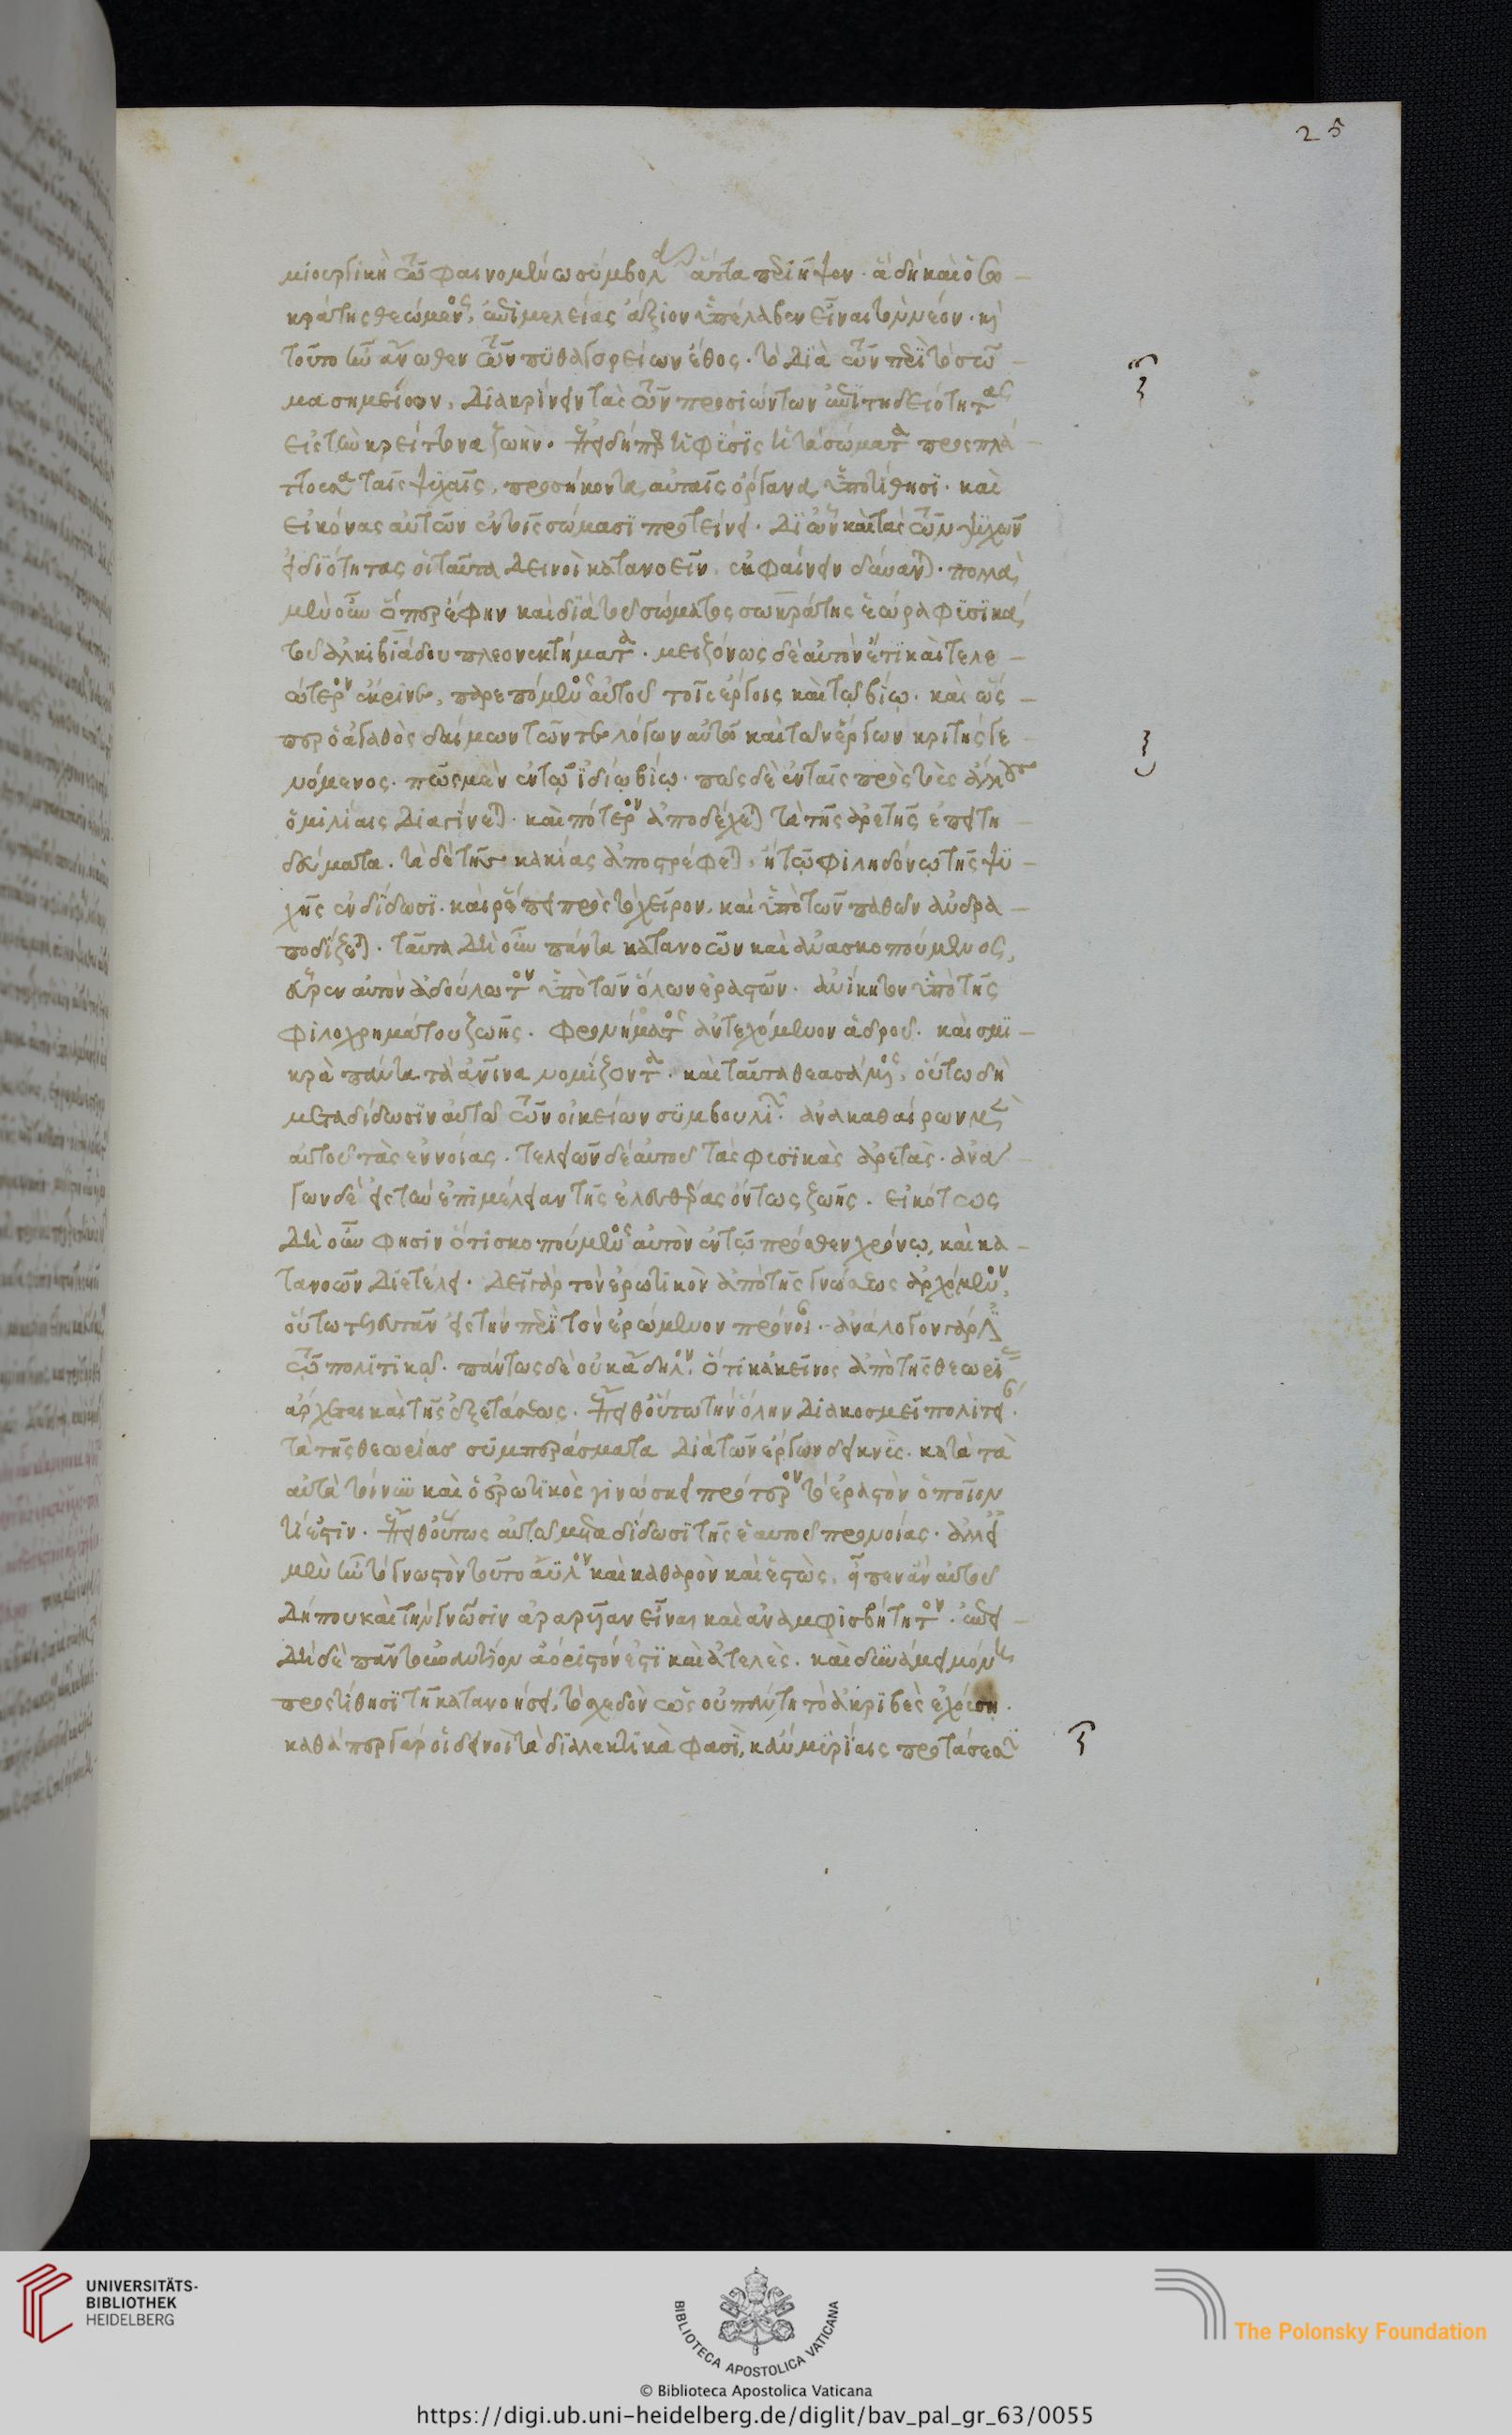 25
μιουργικὴ τῶν φαινομένων σύμβολα ἄττα περιῆψεν· ἃ δὴ καὶ ὁ σω
κράτης θεώμενος, ἐπιμελείας ἄξιον ὑπέλαβεν εἶναι τὸν νέον· καὶ
τοῦτο ἦν ἄνωθεν τῶν πυθαγορείων ἔθος· τὸ διὰ τῶν περὶ τὸ σῶ
μα σημείων, διακρίνειν τὰς τῶν προσιόντων ἐπιτηδειότητας
εἰς τὴν κρείττονα ζωήν. ἐπεὶ δήπερ ἡ φύσις ἡ τὰ σώματα προσπλά
ττουσα ταῖς ψυχαῖς, προσήκοντα αὐταῖς ὄργανα ὑποτίθησι· καὶ
εἰκόνας αὐτῶν ἐν τοῖς σώμασι προτείνει· δι' ὧν καὶ τὰς τῶν ψυχῶν
ἰδιότητας οἱ ταῦτα δεινοὶ κατανοεῖν, ἐκφαίνειν δύνανται· πολλὰ
μὲν οὖν ὅπερ ἔφην καὶ διὰ τοῦ σώματος σωκράτης ἑώρα φυσικὰ
τοῦ ἀλκιβιάδου πλεονεκτήματα· μειζόνως δὲ αὐτὸν ἔτι καὶ τελε
ώτερον ἔκρινε, παρεπόμενος αὐτοῦ τοῖς ἔργοις καὶ τῷ βίῳ· καὶ ὥς
περ ὁ ἀγαθὸς δαίμων τῶν τε λόγων αὐτοῦ καὶ τῶν ἔργων κριτὴς γε
νόμενος· πῶς μὲν ἐν τῷ ἰδίῳ βίῳ· πῶς δὲ ἐν ταῖς πρὸς τοὺς ἄλλους
ὁμιλίαις διαγίνεται· καὶ πότερον ἀποδέχεται τὰ τῆς ἀρετῆς ἐπιτη
δεύματα· τὰ δὲ τῆς κακίας ἀποστρέφεται, ἢ τῷ φιληδόνῳ τῆς ψυ
χῆς ἐνδίδωσι· καὶ ῥέπει πρὸς τὸ χεῖρον, καὶ ὑπὸ τῶν παθῶν ἀνδρα
ποδίζεται· ταῦτα δὴ οὖν πάντα κατανοῶν καὶ ἀνασκοπούμενος,
εὗρεν αὐτὸν ἀδούλωτον ὑπὸ τῶν ὅλων ἐραστῶν· ἀνίκητον ὑπὸ τῆς
φιλοχρημάτου ζωῆς· φρονήματος ἀντεχόμενον ἁδροῦ· καὶ σμι
κρὰ πάντα τὰ ἄνθινα νομίζοντα· καὶ ταῦτα θεασάμενος, οὕτω δὴ
μεταδίδωσιν αὐτῷ τῶν οἰκείων συμβουλιῶν· ἀνακαθαίρων μὲν
αὐτοῦ τὰς ἐννοίας· τελειῶν δὲ αὐτοῦ τὰς φυσικὰς ἀρετάς· ἀνά
γων δὲ εἰς τὴν ἐπιμέλειαν τῆς ἐλευθέρας ὄντως ζωῆς. εἰκότως
δὴ οὖν φησὶν ὅτι σκοπούμενος αὐτὸν ἐν τῷ πρόσθεν χρόνῳ, καὶ κα
τανοῶν διετέλει· δεῖ γὰρ τὸν ἐρωτικὸν ἀπὸ τῆς γνώσεως ἀρχόμενον,
οὕτω τελευτᾶν εἰς τὴν περὶ τὸν ἐρώμενον πρόνοιαν· ἀνάλογον γάρ ἐστι
τῷ πολιτικῷ· πάντως δὲ οὐκ ἄδηλον, ὅτι κἀκεῖνος ἀπὸ τῆς θεωρίας
ἄρχεται καὶ τῆς ἐξετάσεως· ἔπειθ' οὕτω τὴν ὅλην διακοσμεῖ πολιτείαν·
τὰ τῆς θεωρίας συμπεράσματα διὰ τῶν ἔργων δεικνύς· κατὰ τὰ
αὐτὰ τοίνυν καὶ ὁ ἐρωτικὸς γινώσκει πρότερον τὸ ἐραστὸν ὁποῖον
τί ἐστιν· ἔπειθ' οὕτως αὐτῷ μεταδίδωσι τῆς ἑαυτοῦ προνοίας· ἀλλ' εἰ
μὲν ἦν τὸ γνωστὸν τοῦτο ἄϋλον καὶ καθαρὸν καὶ ἑστώς, εἴπεν ἂν αὐτοῦ
δήπου καὶ τὴν γνῶσιν ἀραρυῖαν εἶναι καὶ ἀναμφισβήτητον· ἐπεὶ
δὴ δὲ πᾶν τὸ ἔνυλον ἀόριστόν ἐστι καὶ ἀτελὲς· καὶ δυνάμει μόνῃ
προστίθησι τῇ κατανοήσει, τὸ σχεδὸν ὡς οὐ πάντῃ τὸ ἀκριβὲς ἐχούσῃ·
καθάπερ γὰρ οἱ δεινοὶ τὰ διαλεκτικὰ φασί, κἂν μυρίαις προτάσεσι
UNIVERSITÄTS-
BIBLIOTHEK
HEIDELBERG
BIBLIOTECA APOSTOLICA VATICANA
© Biblioteca Apostolica Vaticana
The Polonsky Foundation
https://digi.ub.uni-heidelberg.de/diglit/bav_pal_gr_63/0055